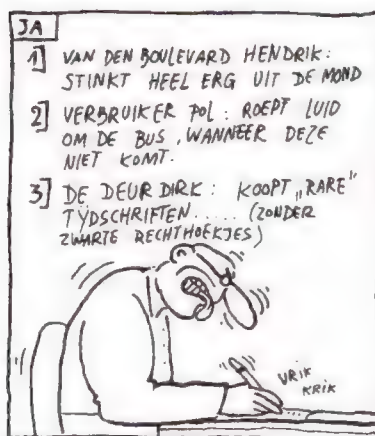 JA
1] VAN DEN BOULEVARD HENDRIK:
STINKT HEEL ERG UIT DE MOND
2] VERBRUIKER POL: ROEPT LUID
OM DE BUS, WANNEER DEZE
NIET KOMT.
3] DE DEUR DIRK: KOOPT „RARE"
TYDSCHRIFTEN..... (ZONDER
ZWARTE RECHTHOEKJES)
URIK
KRIK